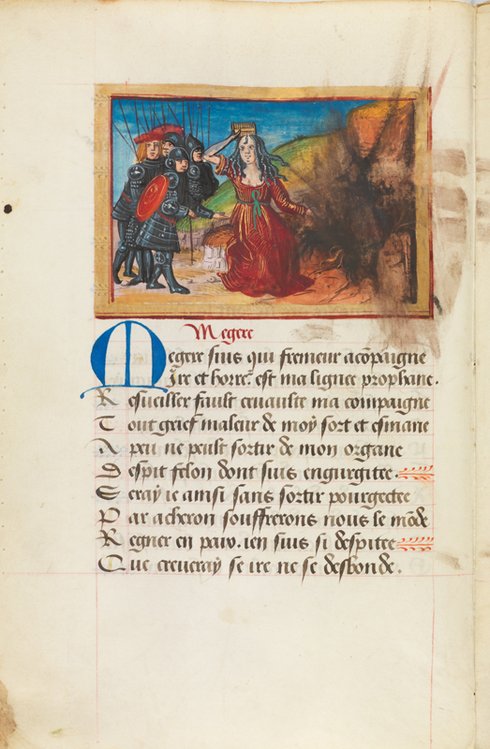 Megere
Megere suis qui fremeur acõpaigne
Ire et horre est ma lignee prophane.
Resueiller fault creuaulte ma compaigne
Tout grief maleur de moy sort et esmane
A peu ne peult sortir de mon organe
Despit felon dont suis engurgitee
Seray ie ainsi sans sortir pourgectee
Par acheron souffrerons nous le mõde
Regner en paix. ien suis si despitee
Que creueray se ire ne se desbonde.